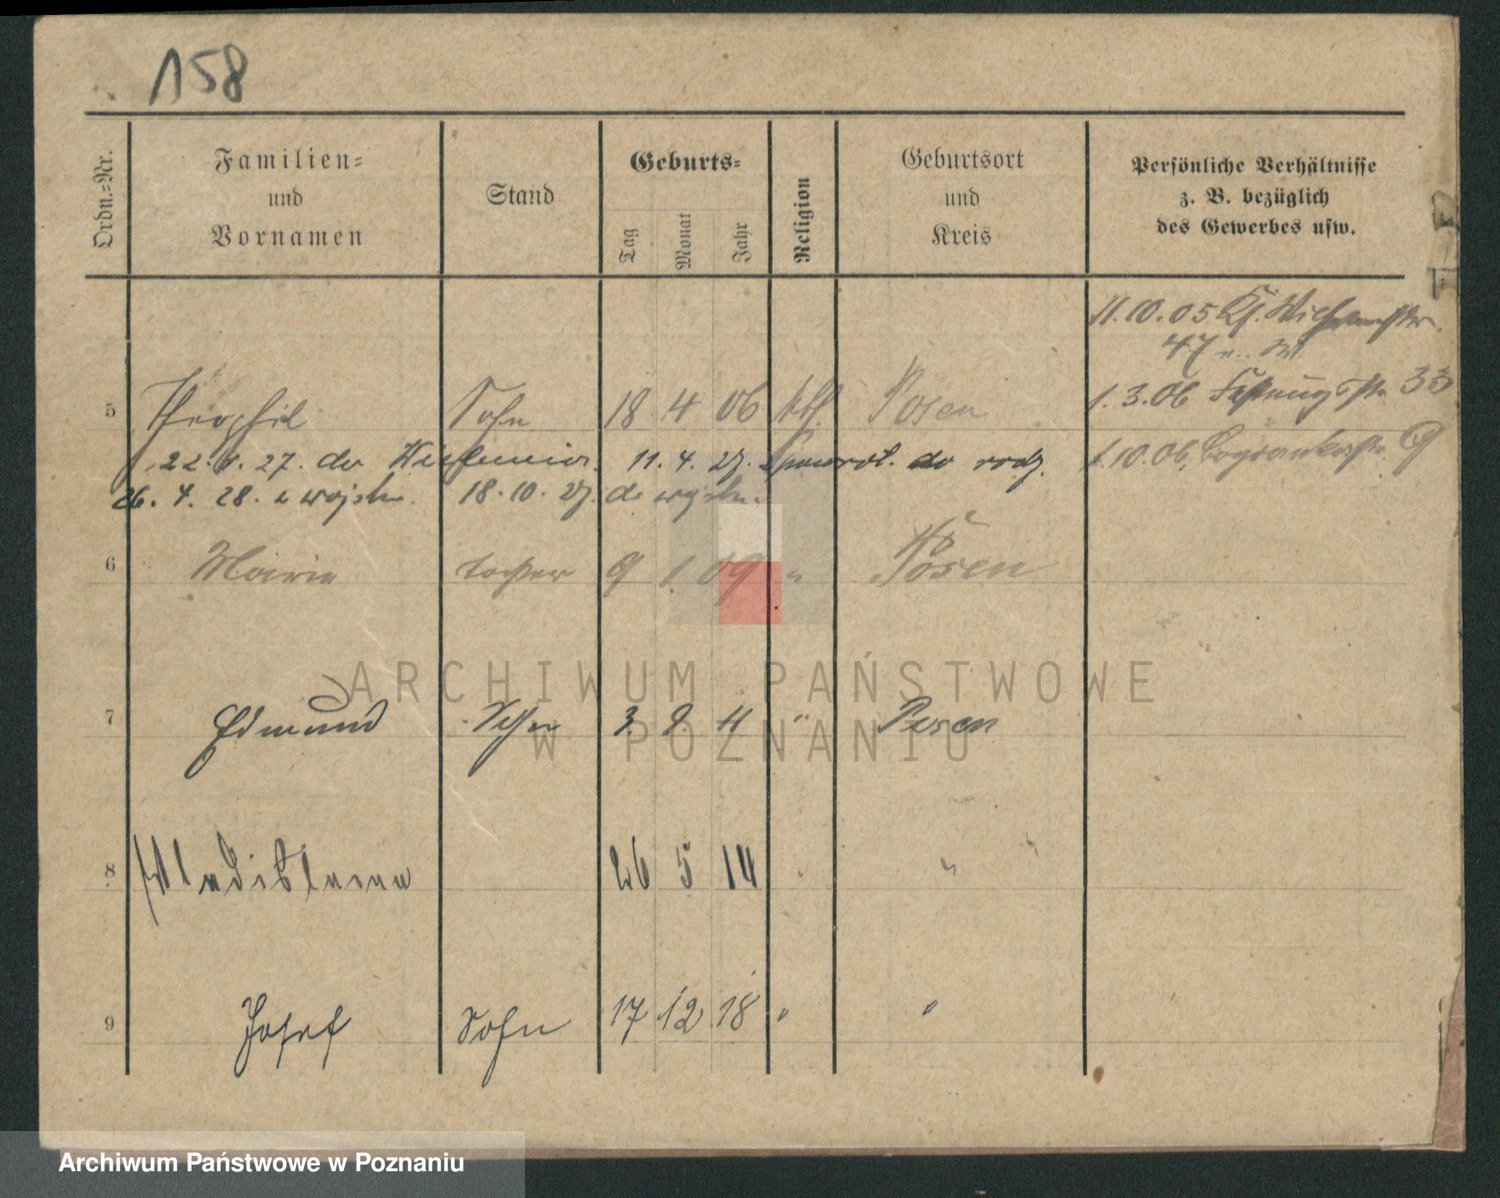 158
Ordn.-Nr.
Familien-
und
Vornamen
Stand
Geburts-
Tag
Monat
Jahr
Religion
Geburtsort
und
Kreis
Persönliche Verhältnisse
z. B. bezüglich
des Gewerbes usw.
11.10.05 Kl.
47
5 Theophil Sohn 18 4 06 kth. Posen 1.3.06 33
22. 1. 27. do 11. 4. 27. powrot. do rodz. 1.10.06. 9
26. 4. 28. z wojska. 18. 10. 27. do wojska.
6 Maria Tochter 9 1. 09 " Posen
7 Edmund Sohn 3. 9. 11 " Posen
8 Wladislawa 26 5 14 "
9 Josef Sohn 17 12 18 " "
ARCHIWUM PAŃSTWOWE
W POZNANIU
Archiwum Państwowe w Poznaniu